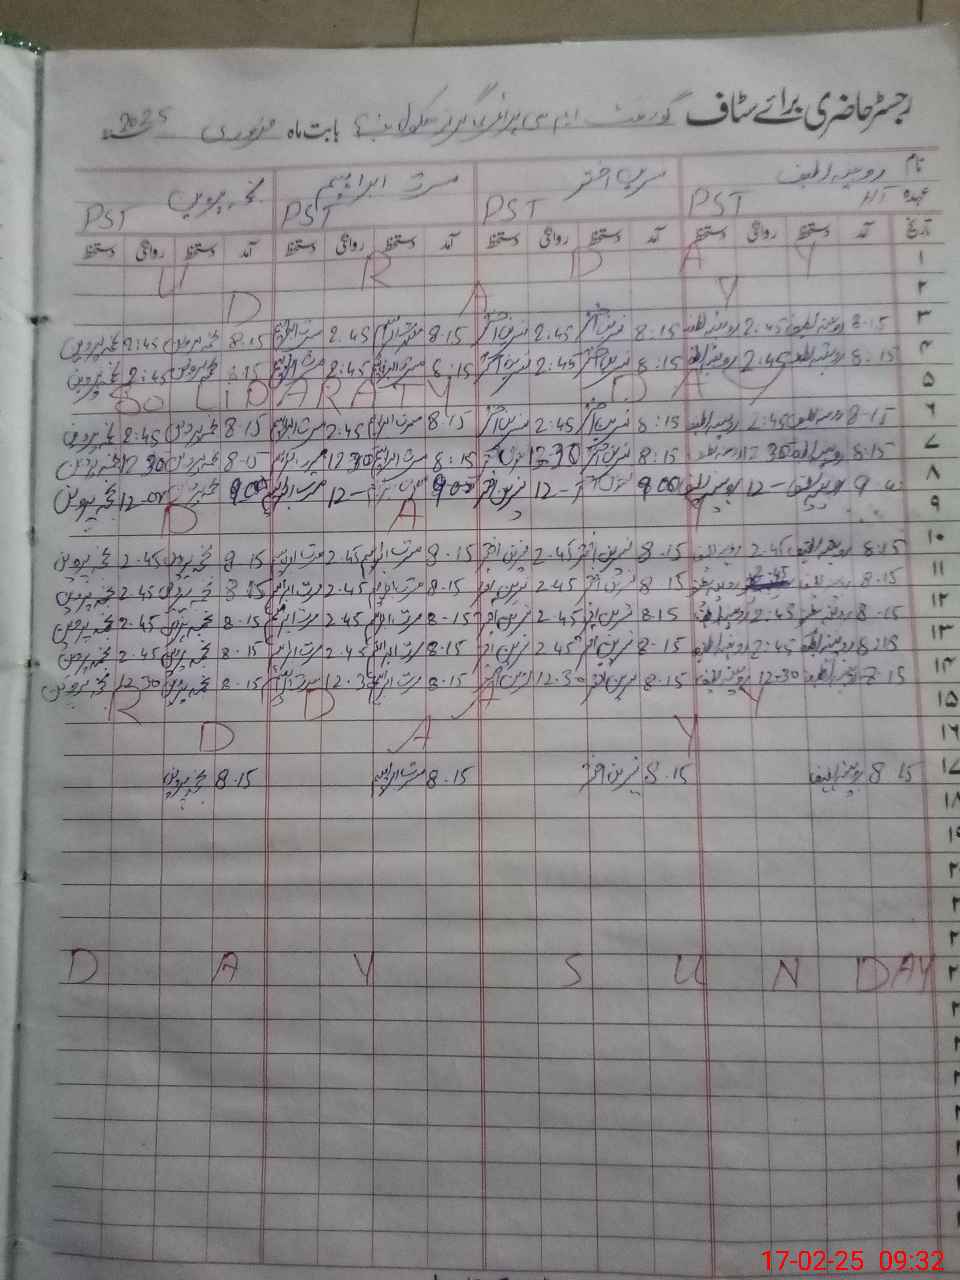 رجسٹر حاضری برائے سٹاف گورنمنٹ ایم سی پرائمری گرلز سکول بابت ماہ فروری 2025
نام روبینہ لطیف نسرین اختر مسرت ابراہیم نجمہ پروین
عہدہ HT PST PST PST PST
تاریخ آمد دستخط روانگی دستخط آمد دستخط روانگی دستخط آمد دستخط روانگی دستخط آمد دستخط روانگی دستخط
۱ U R D A Y
۲ D A Y
۳ 8.15 روبینہ لطیف 2.45 روبینہ لطیف 8:15 نسرین اختر 2.45 نسرین اختر 8.15 مسرت ابراہیم 2.45 مسرت ابراہیم 8.15 نجمہ پروین 2:45 نجمہ پروین
۴ 8:15 روبینہ لطیف 2:45 روبینہ لطیف 8:15 نسرین اختر 2:45 نسرین اختر 8:15 مسرت ابراہیم 2:45 مسرت ابراہیم 8.15 نجمہ پروین 2:45 نجمہ پروین
۵ SOLIDARATY DAY
۶ 8.15 روبینہ لطیف 2.45 روبینہ لطیف 8:15 نسرین اختر 2:45 نسرین اختر 8:15 مسرت ابراہیم 2:45 مسرت ابراہیم 8.15 نجمہ پروین 2:45 نجمہ پروین
۷ 8.15 روبینہ لطیف 12 30 روبینہ لطیف 8:15 نسرین اختر 12 30 نسرین اختر 8:15 مسرت ابراہیم 12 30 مسرت ابراہیم 8.15 نجمہ پروین 12 30 نجمہ پروین
۸ روبینہ لطیف 12 - روبینہ لطیف 9 00 نسرین اختر 12 - نسرین اختر 9 00 مسرت ابراہیم 12 - مسرت ابراہیم 900 نجمہ پروین 12-00 نجمہ پروین
۹ D A Y
۱۰ 8.15 روبینہ لطیف 2.45 روبینہ لطیف 8.15 نسرین اختر 2.45 نسرین اختر 8.15 مسرت ابراہیم 2.45 مسرت ابراہیم 8.15 نجمہ پروین 2.45 نجمہ پروین
۱۱ 8.15 روبینہ لطیف 2.45 روبینہ لطیف 8.15 نسرین اختر 2.45 نسرین اختر 8.15 مسرت ابراہیم 2.45 مسرت ابراہیم 8.15 نجمہ پروین 2.45 نجمہ پروین
۱۲ 8.15 روبینہ لطیف 2.45 روبینہ لطیف 8.15 نسرین اختر 2.45 نسرین اختر 8.15 مسرت ابراہیم 2.45 مسرت ابراہیم 8.15 نجمہ پروین 2.45 نجمہ پروین
۱۳ 8.15 روبینہ لطیف 2.45 روبینہ لطیف 8.15 نسرین اختر 2.45 نسرین اختر 8.15 مسرت ابراہیم 2.45 مسرت ابراہیم 8.15 نجمہ پروین 2.45 نجمہ پروین
۱۴ 8.15 روبینہ لطیف 12.30 روبینہ لطیف 8.15 نسرین اختر 12.30 نسرین اختر 8.15 مسرت ابراہیم 12.3 مسرت ابراہیم 8.15 نجمہ پروین 12.30 نجمہ پروین
۱۵ R D A Y
۱۶ D A Y
۱۷ 8.15 روبینہ لطیف 8.15 نسرین اختر 8.15 مسرت ابراہیم 8.15 نجمہ پروین
۱۸
D A Y S U N D A Y
17-02-25 09:32